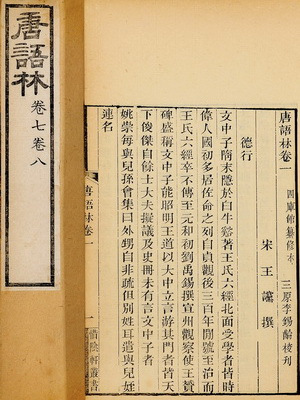 唐語林
卷七卷八
唐語林卷一 四庫館纂修本 三原李錫齡校刊
宋 王讜 撰
德行
文中子隋末隱於白牛谿著王氏六經北面受學者皆時
偉人國初多居佐命之列自貞觀後三百年間號至治而
王氏六經卒不傳至元和初劉禹錫撰宣州觀察使王贊
碑盛稱文中子能昭明王道以大中立言游其門者皆天
下俊傑自餘士大夫擬議及史冊未有言文中子者
姚崇每與兒孫會集曰外甥自非疎但別姓耳遣與兒姪
連名
唐語林卷一
一
惜陰軒叢書